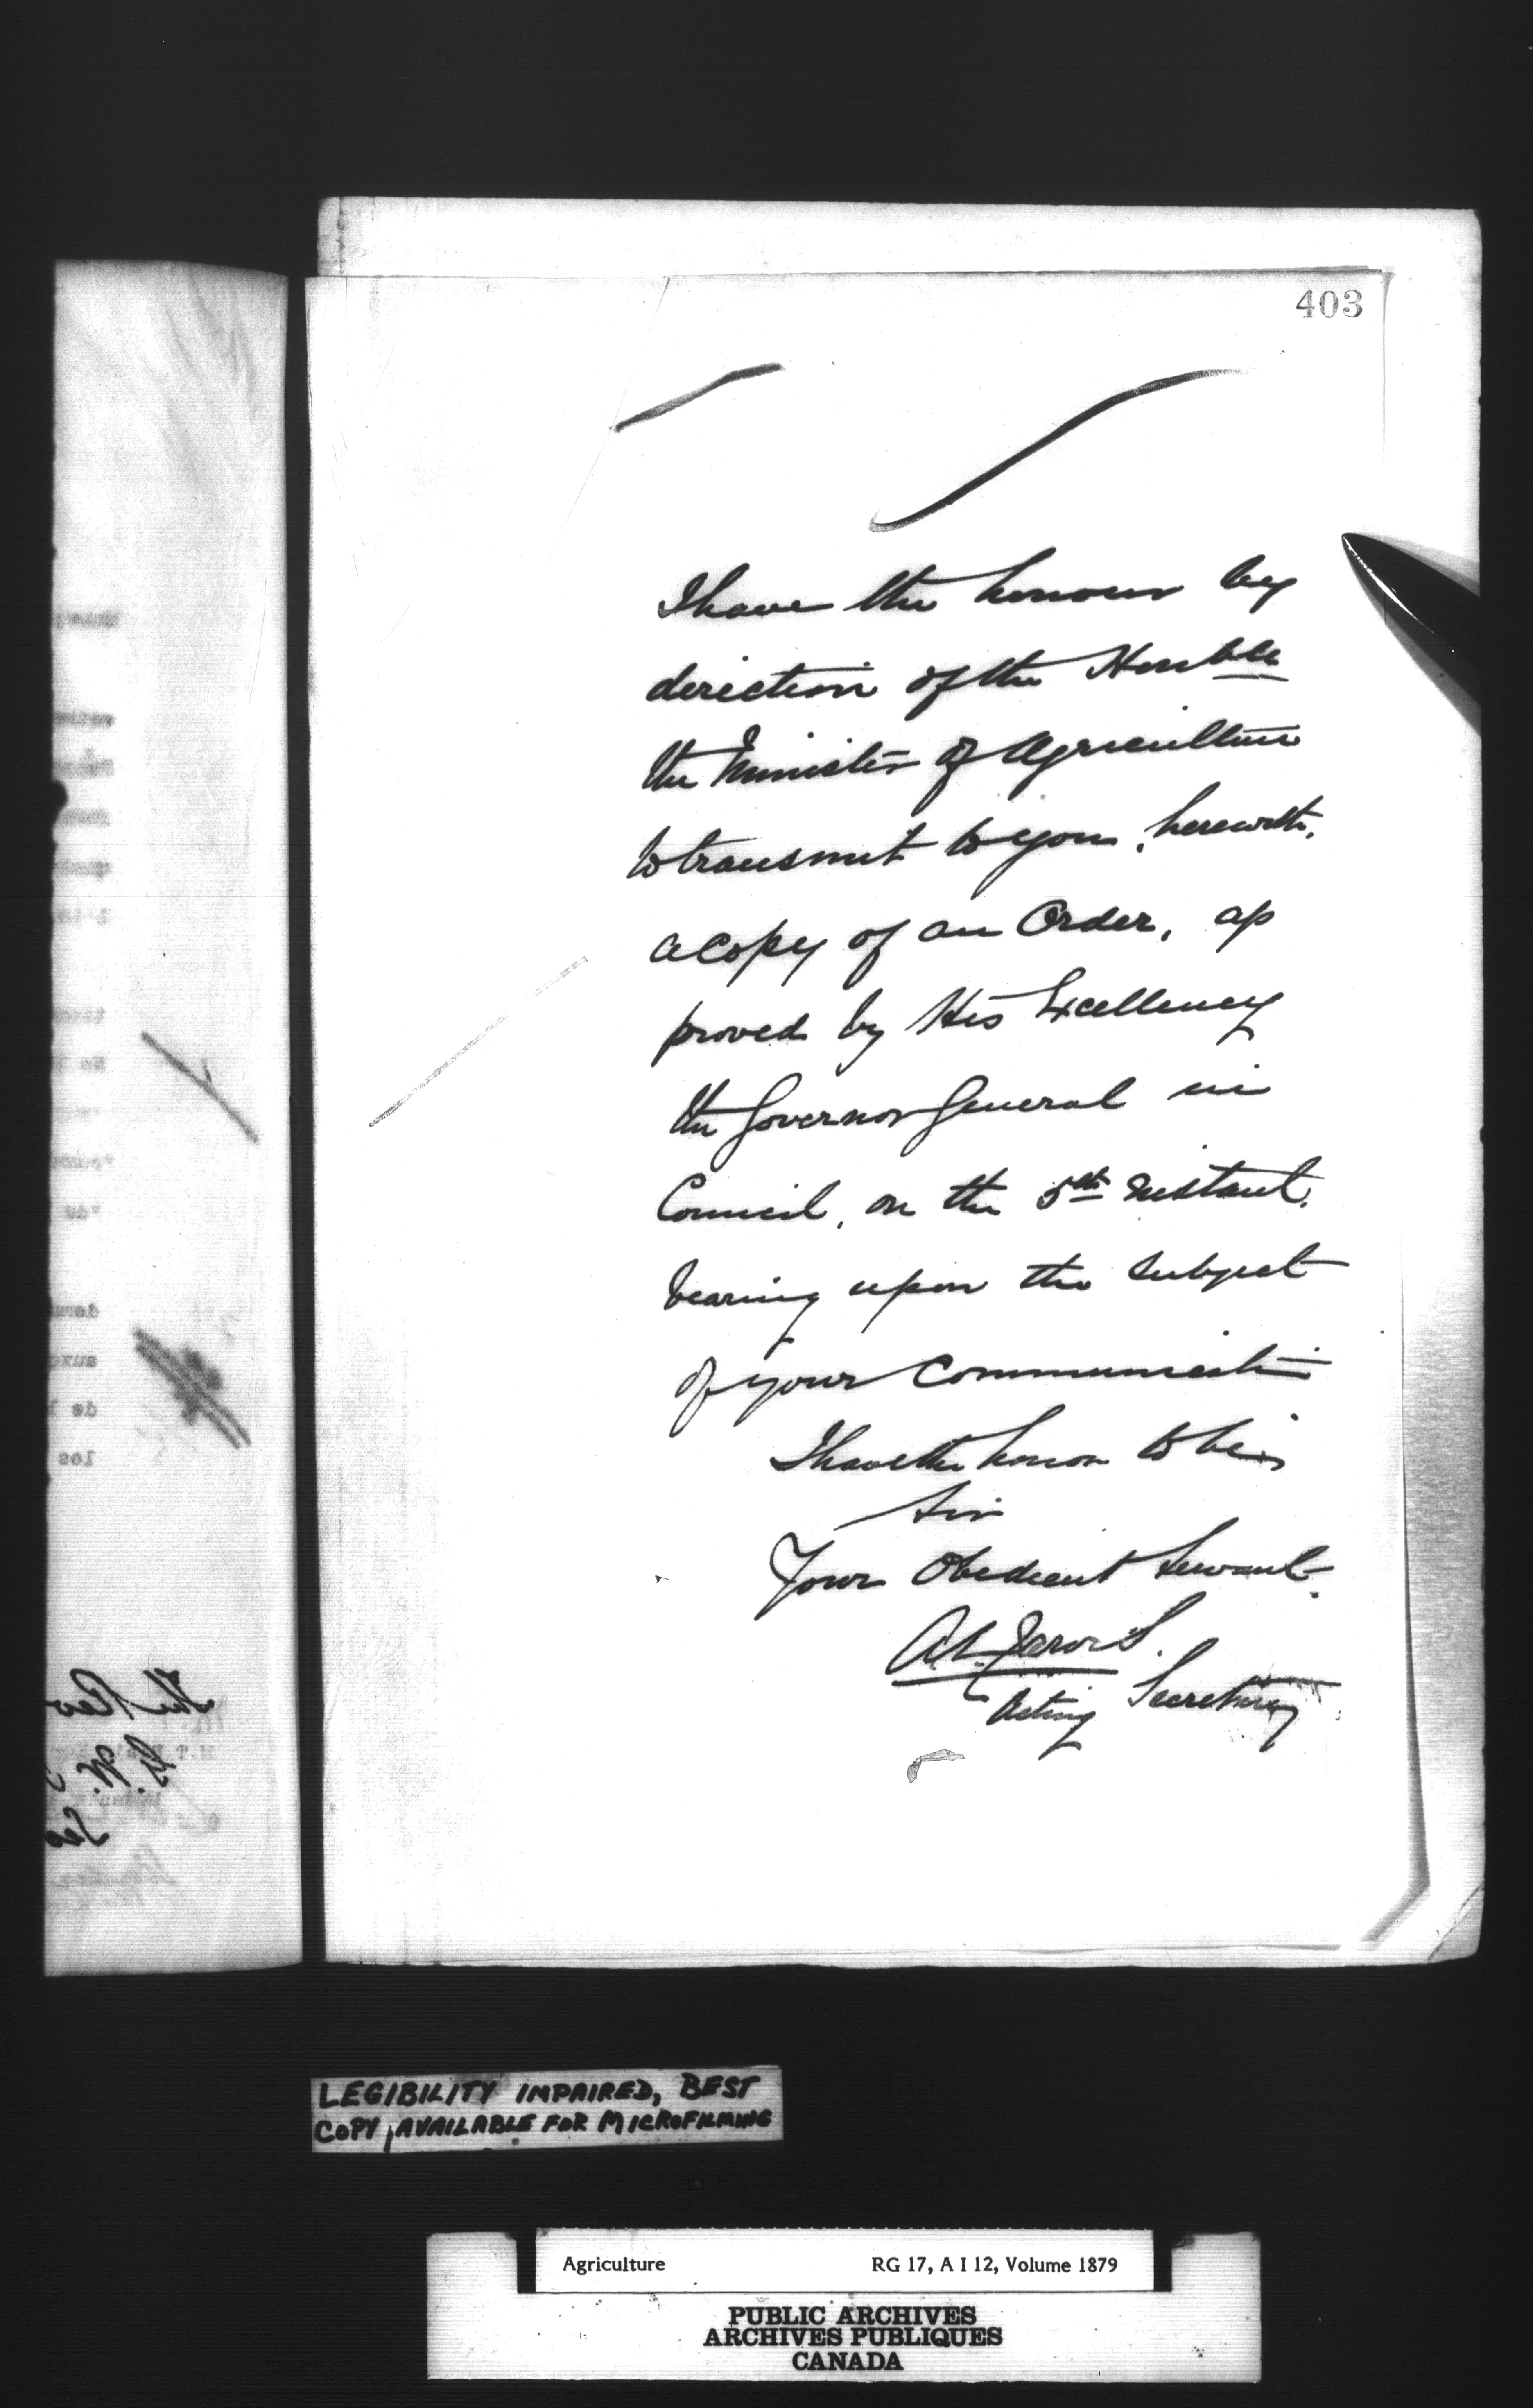 403
I have the honour by
direction of the Honble
the Minister of Agriculture
to transmit to you, herewith,
a copy of an Order, ap
proved by His Excellency
the Governor General in
Council, on the 5th instant,
bearing upon the subject
of your communication
I have the honor to be,
Sir
Your Obedient Servant.
A. L. Jarvis.
Acting Secretary
The Rev
G. W.
Sec
LEGIBILITY IMPAIRED, BEST
COPY AVAILABLE FOR MICROFILMING
Agriculture RG 17, A I 12, Volume 1879
PUBLIC ARCHIVES
ARCHIVES PUBLIQUES
CANADA